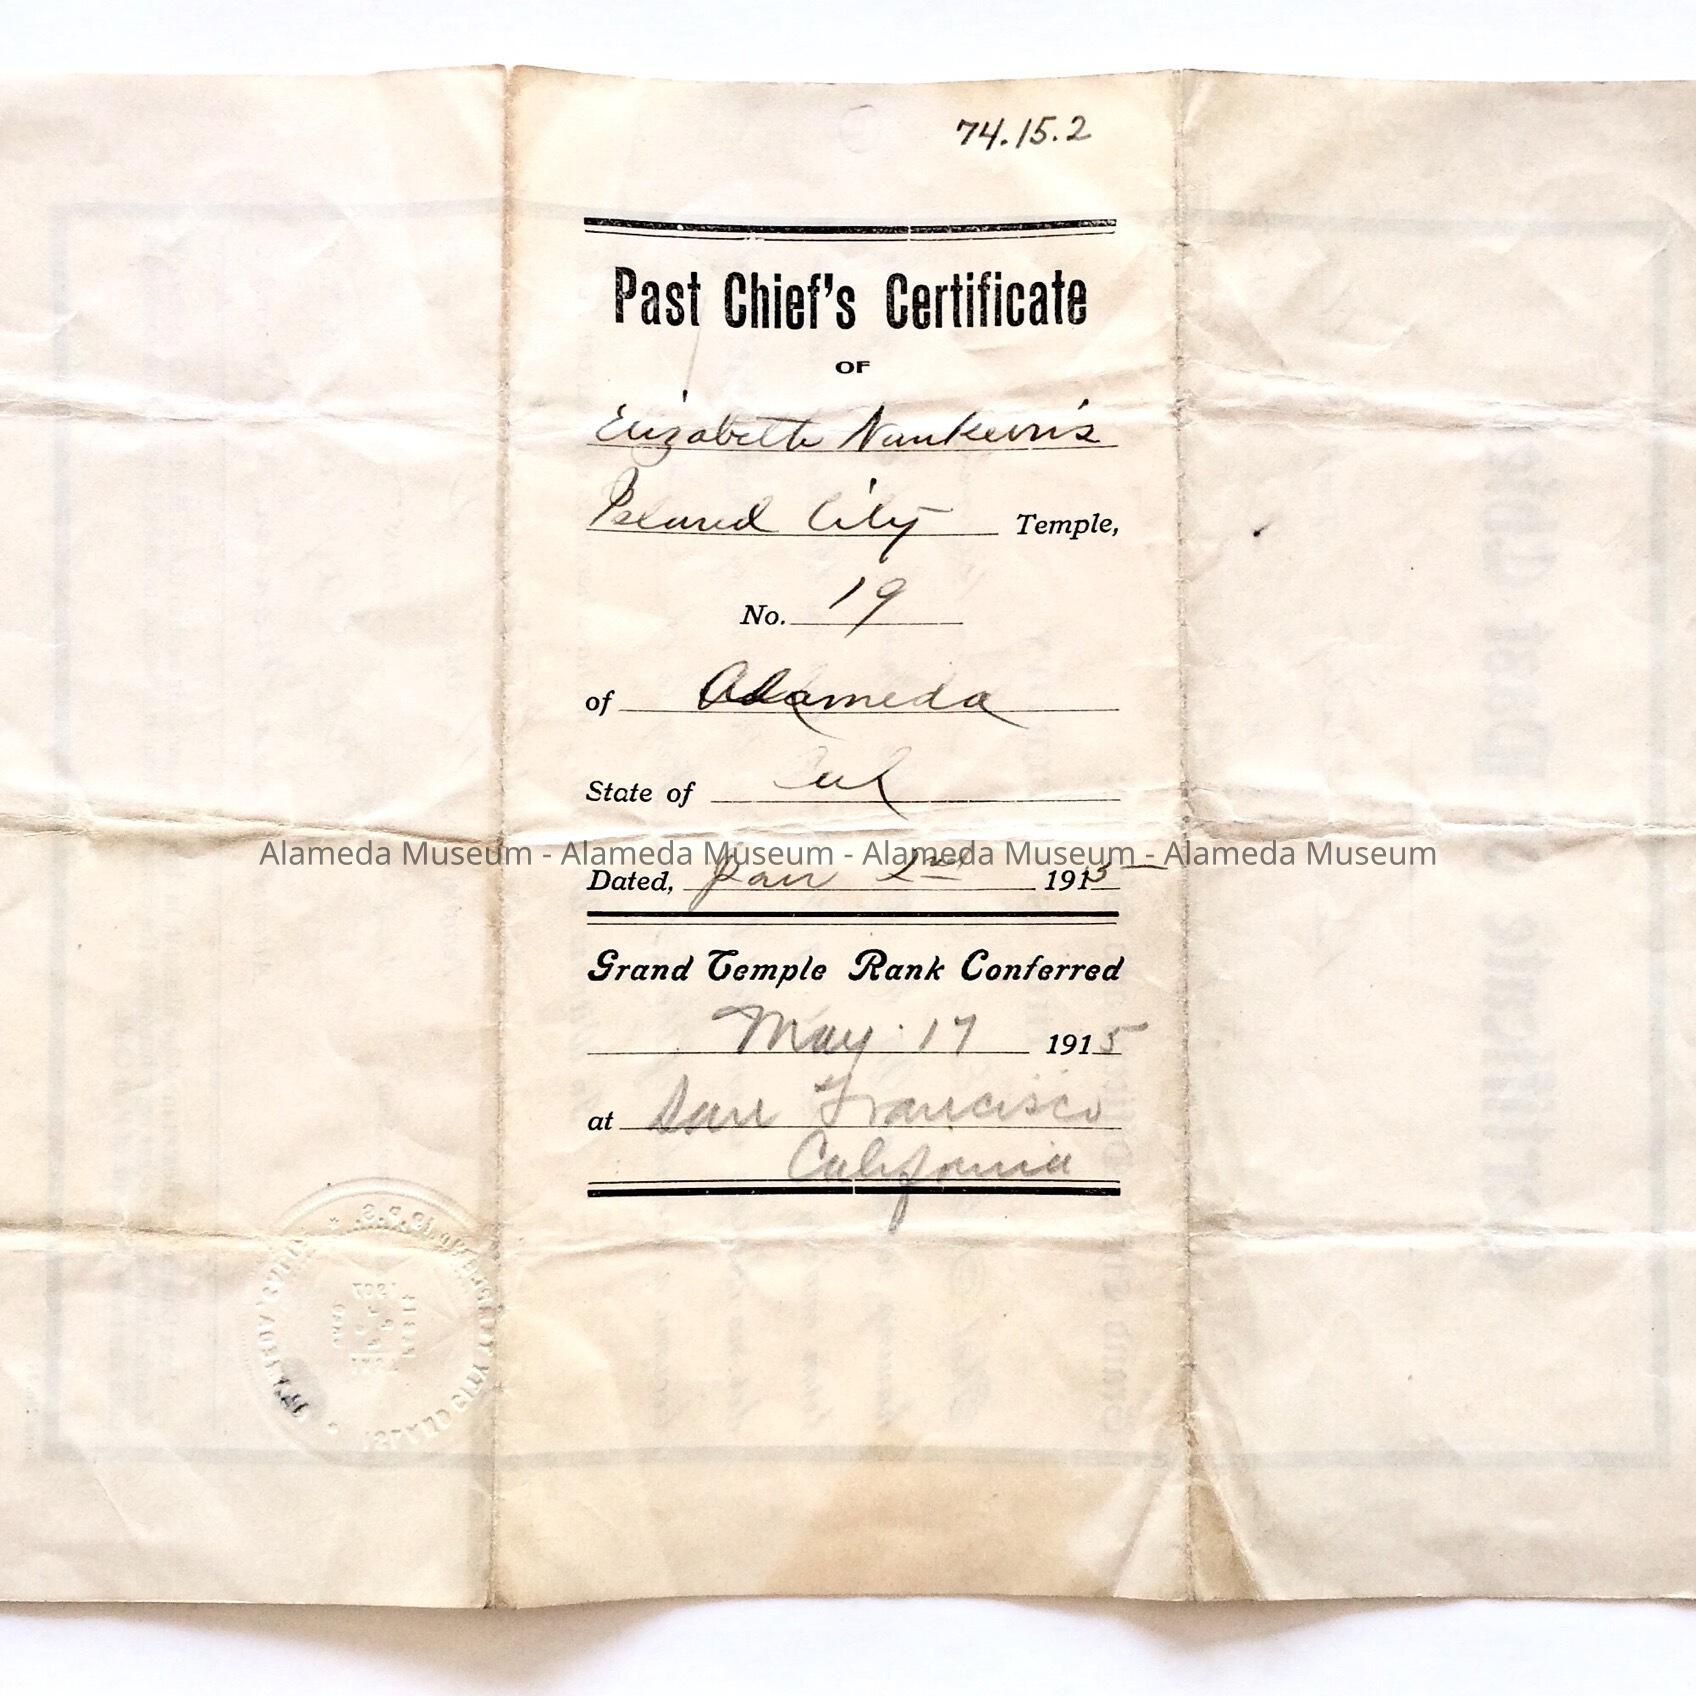 74.15.2
Past Chief's Certificate
OF
Elizabeth Nankervis
Island City Temple,
No. 19
of Alameda
State of Cal
Alameda Museum - Alameda Museum - Alameda Museum - Alameda Museum
Dated, Jan 2nd 1915
Grand Temple Rank Conferred
May 17 1915
at San Francisco
California